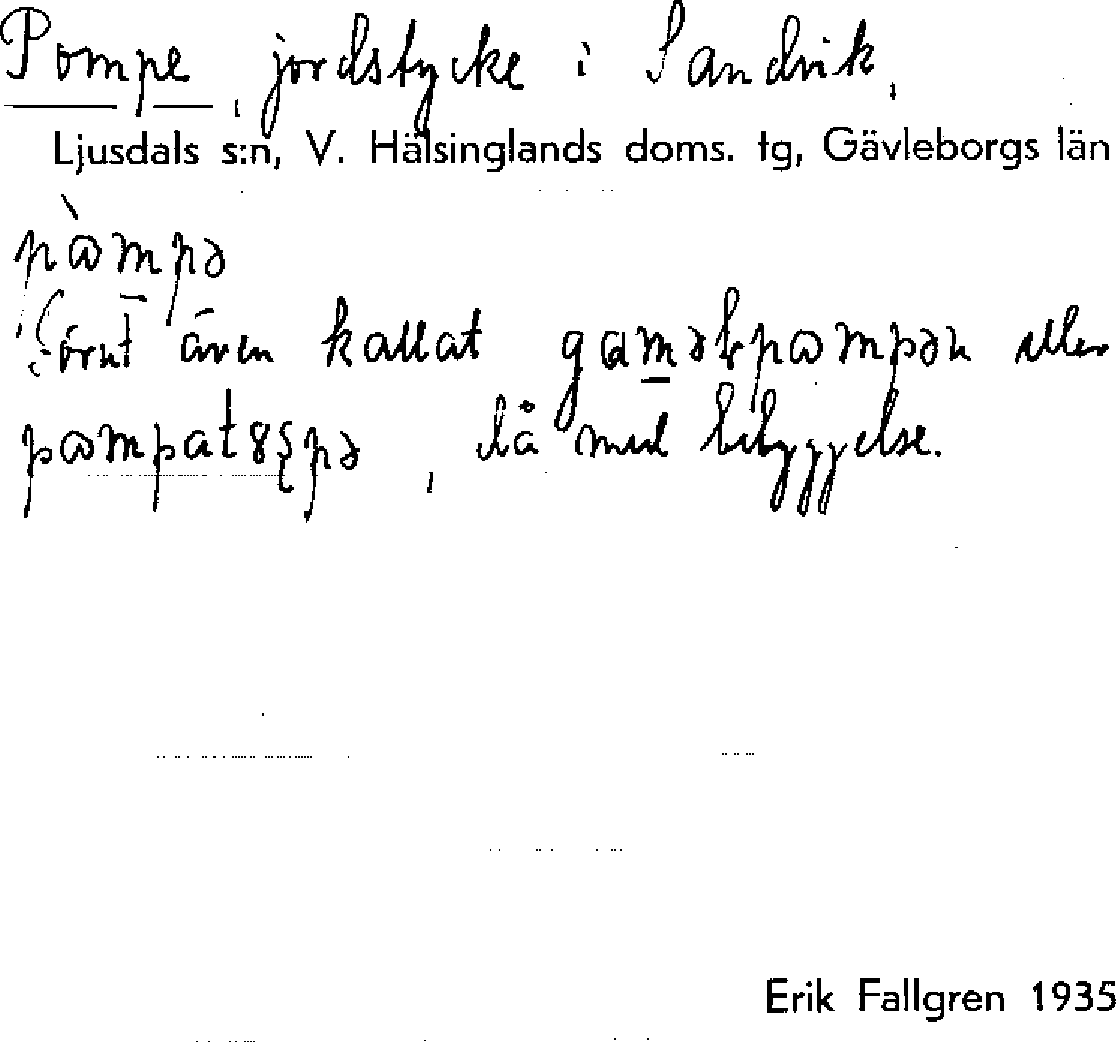 Pompe, jordstycke i Sandvik,
Ljusdals s:n, V. Hälsinglands doms. tg, Gävleborgs län
pὰmpə
Förut även kallat gaməlpɷmpən eller
då med bebyggelse.
Erik Fallgren 1935